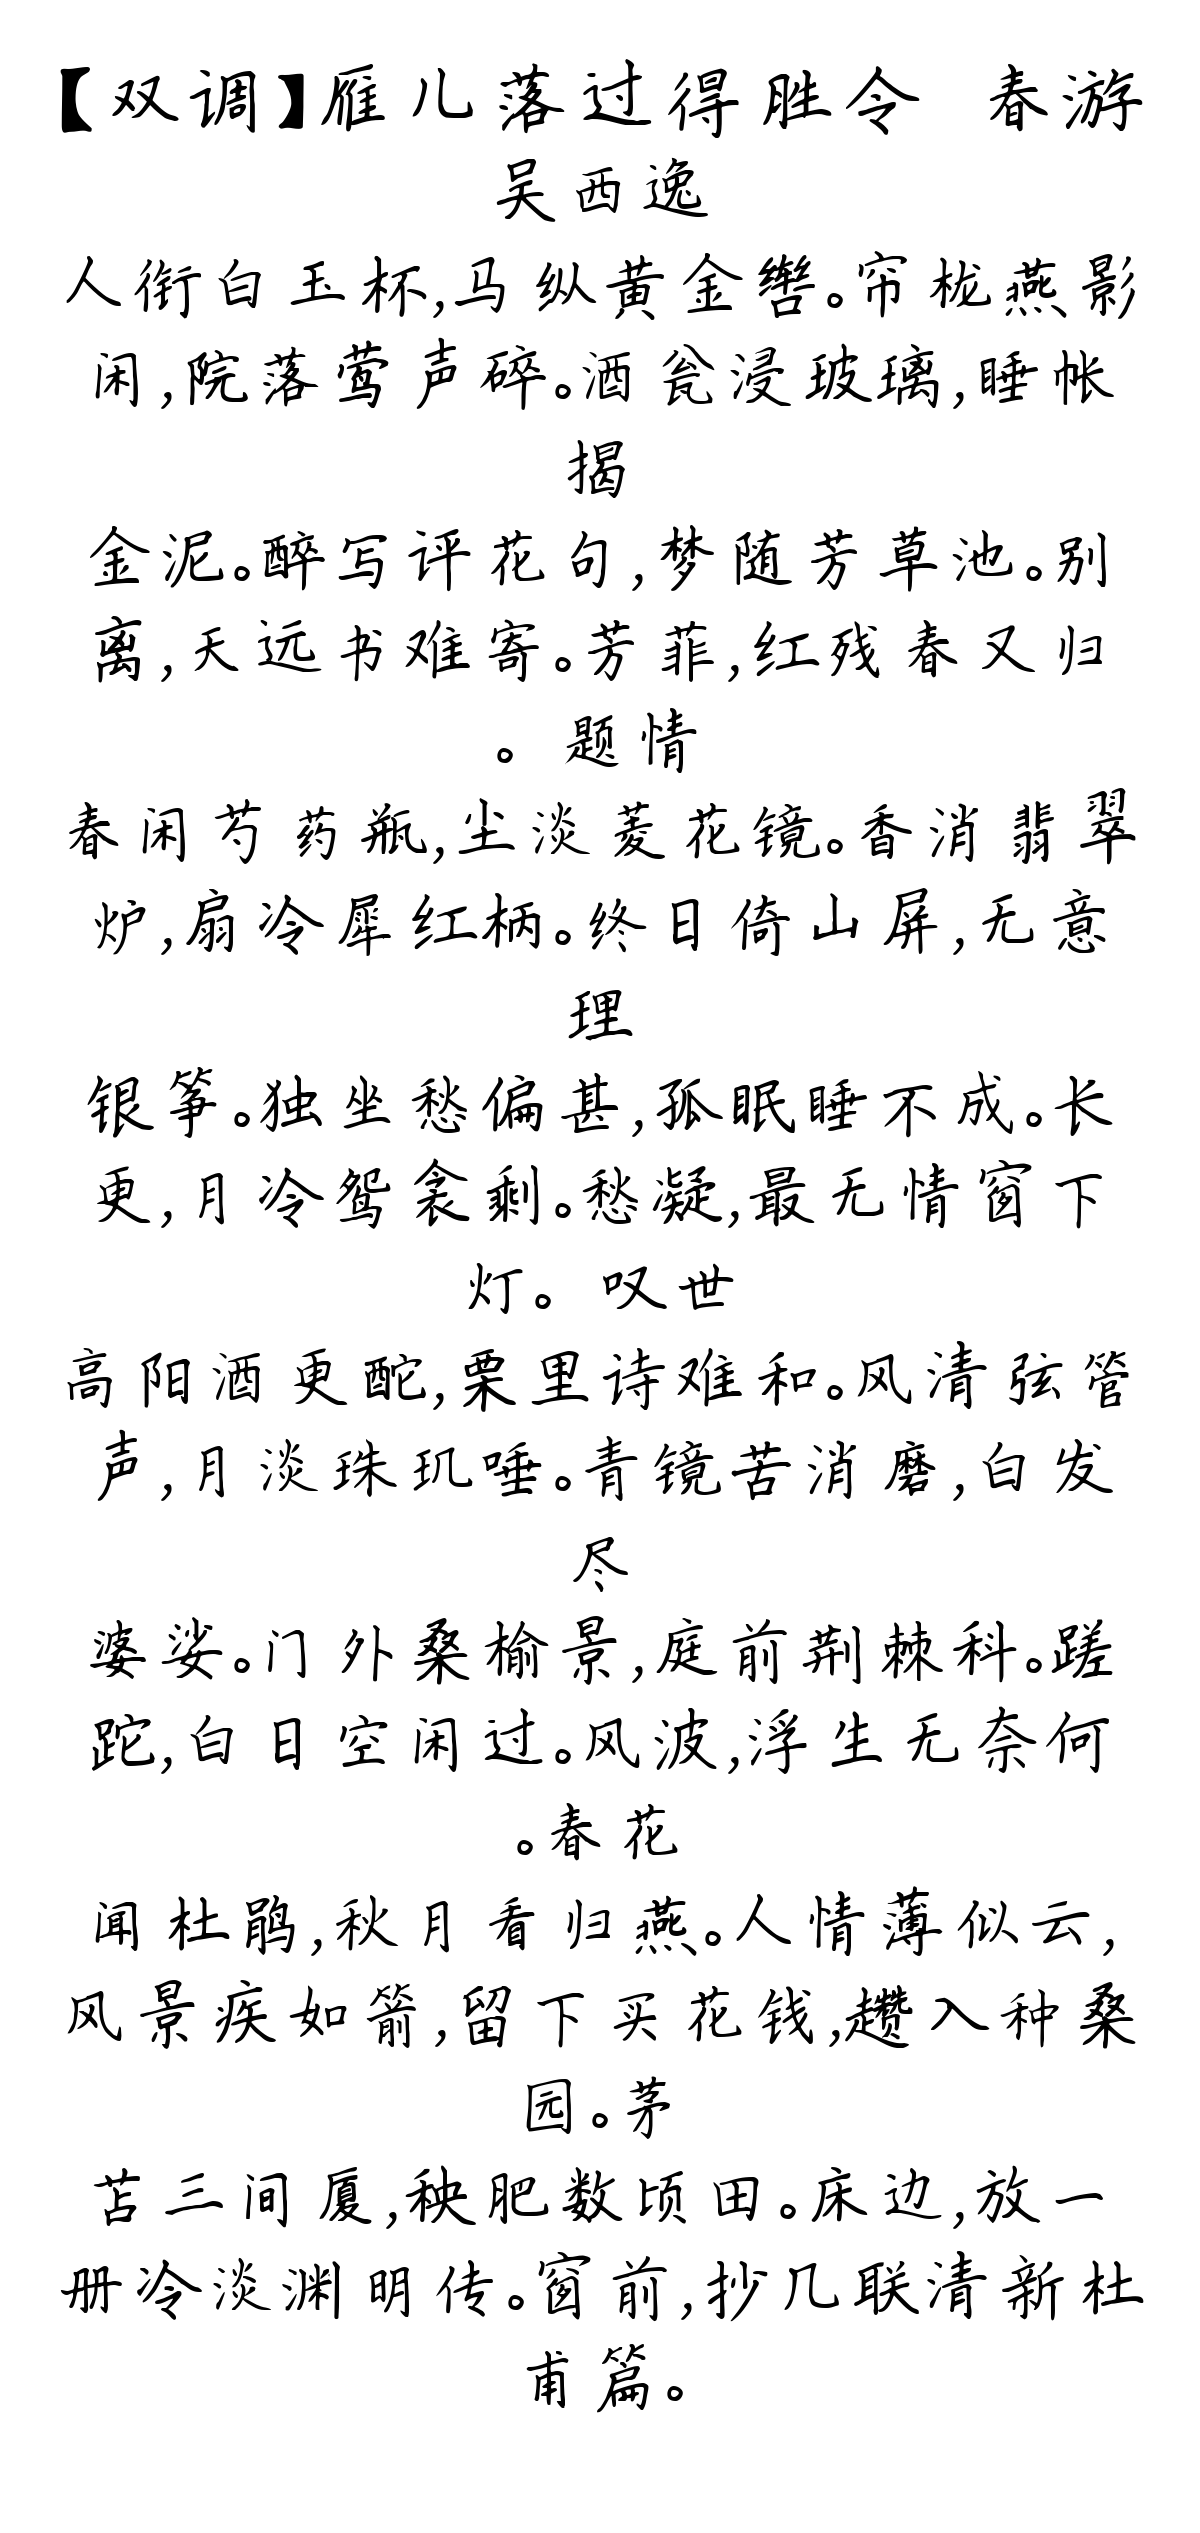 【双调】雁儿落过得胜令 春游
吴西逸
人衔白玉杯,马纵黄金辔。帘栊燕影
闲,院落莺声碎。酒瓮浸玻璃,睡帐
揭
金泥。醉写评花句,梦随芳草池。别
离,天远书难寄。芳菲,红残春又归
。 题情
春闲芍药瓶,尘淡菱花镜。香消翡翠
炉,扇冷犀红柄。终日倚山屏,无意
理
银筝。独坐愁偏甚,孤眠睡不成。长
更,月冷鸳衾剩。愁凝,最无情窗下
灯。 叹世
高阳酒更酡,栗里诗难和。风清弦管
声,月淡珠玑唾。青镜苦消磨,白发
尽
婆娑。门外桑榆景,庭前荆棘科。蹉
跎,白日空闲过。风波,浮生无奈何
。春花
闻杜鹃,秋月看归燕。人情薄似云,
风景疾如箭,留下买花钱,趱入种桑
园。茅
苫三间厦,秧肥数顷田。床边,放一
册冷淡渊明传。窗前,抄几联清新杜
甫篇。